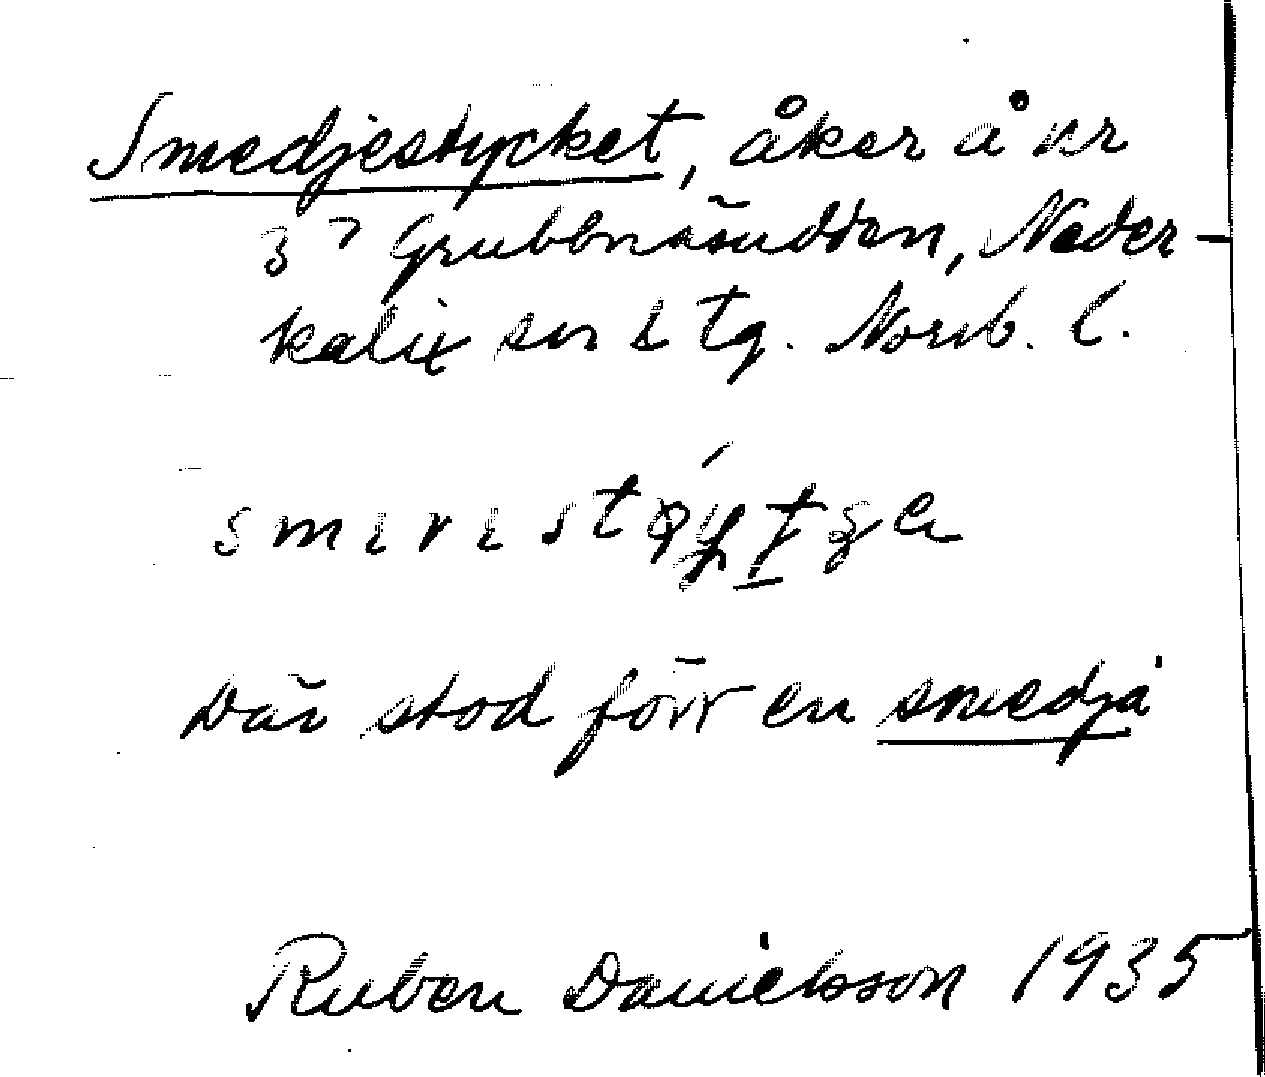 Smedjestycket, åker å nr
3 Grubbnäsudden, Neder-
kalix sn o tg. Norrb. l.
Där stod förr en smedja
Ruben Danielsson 1935